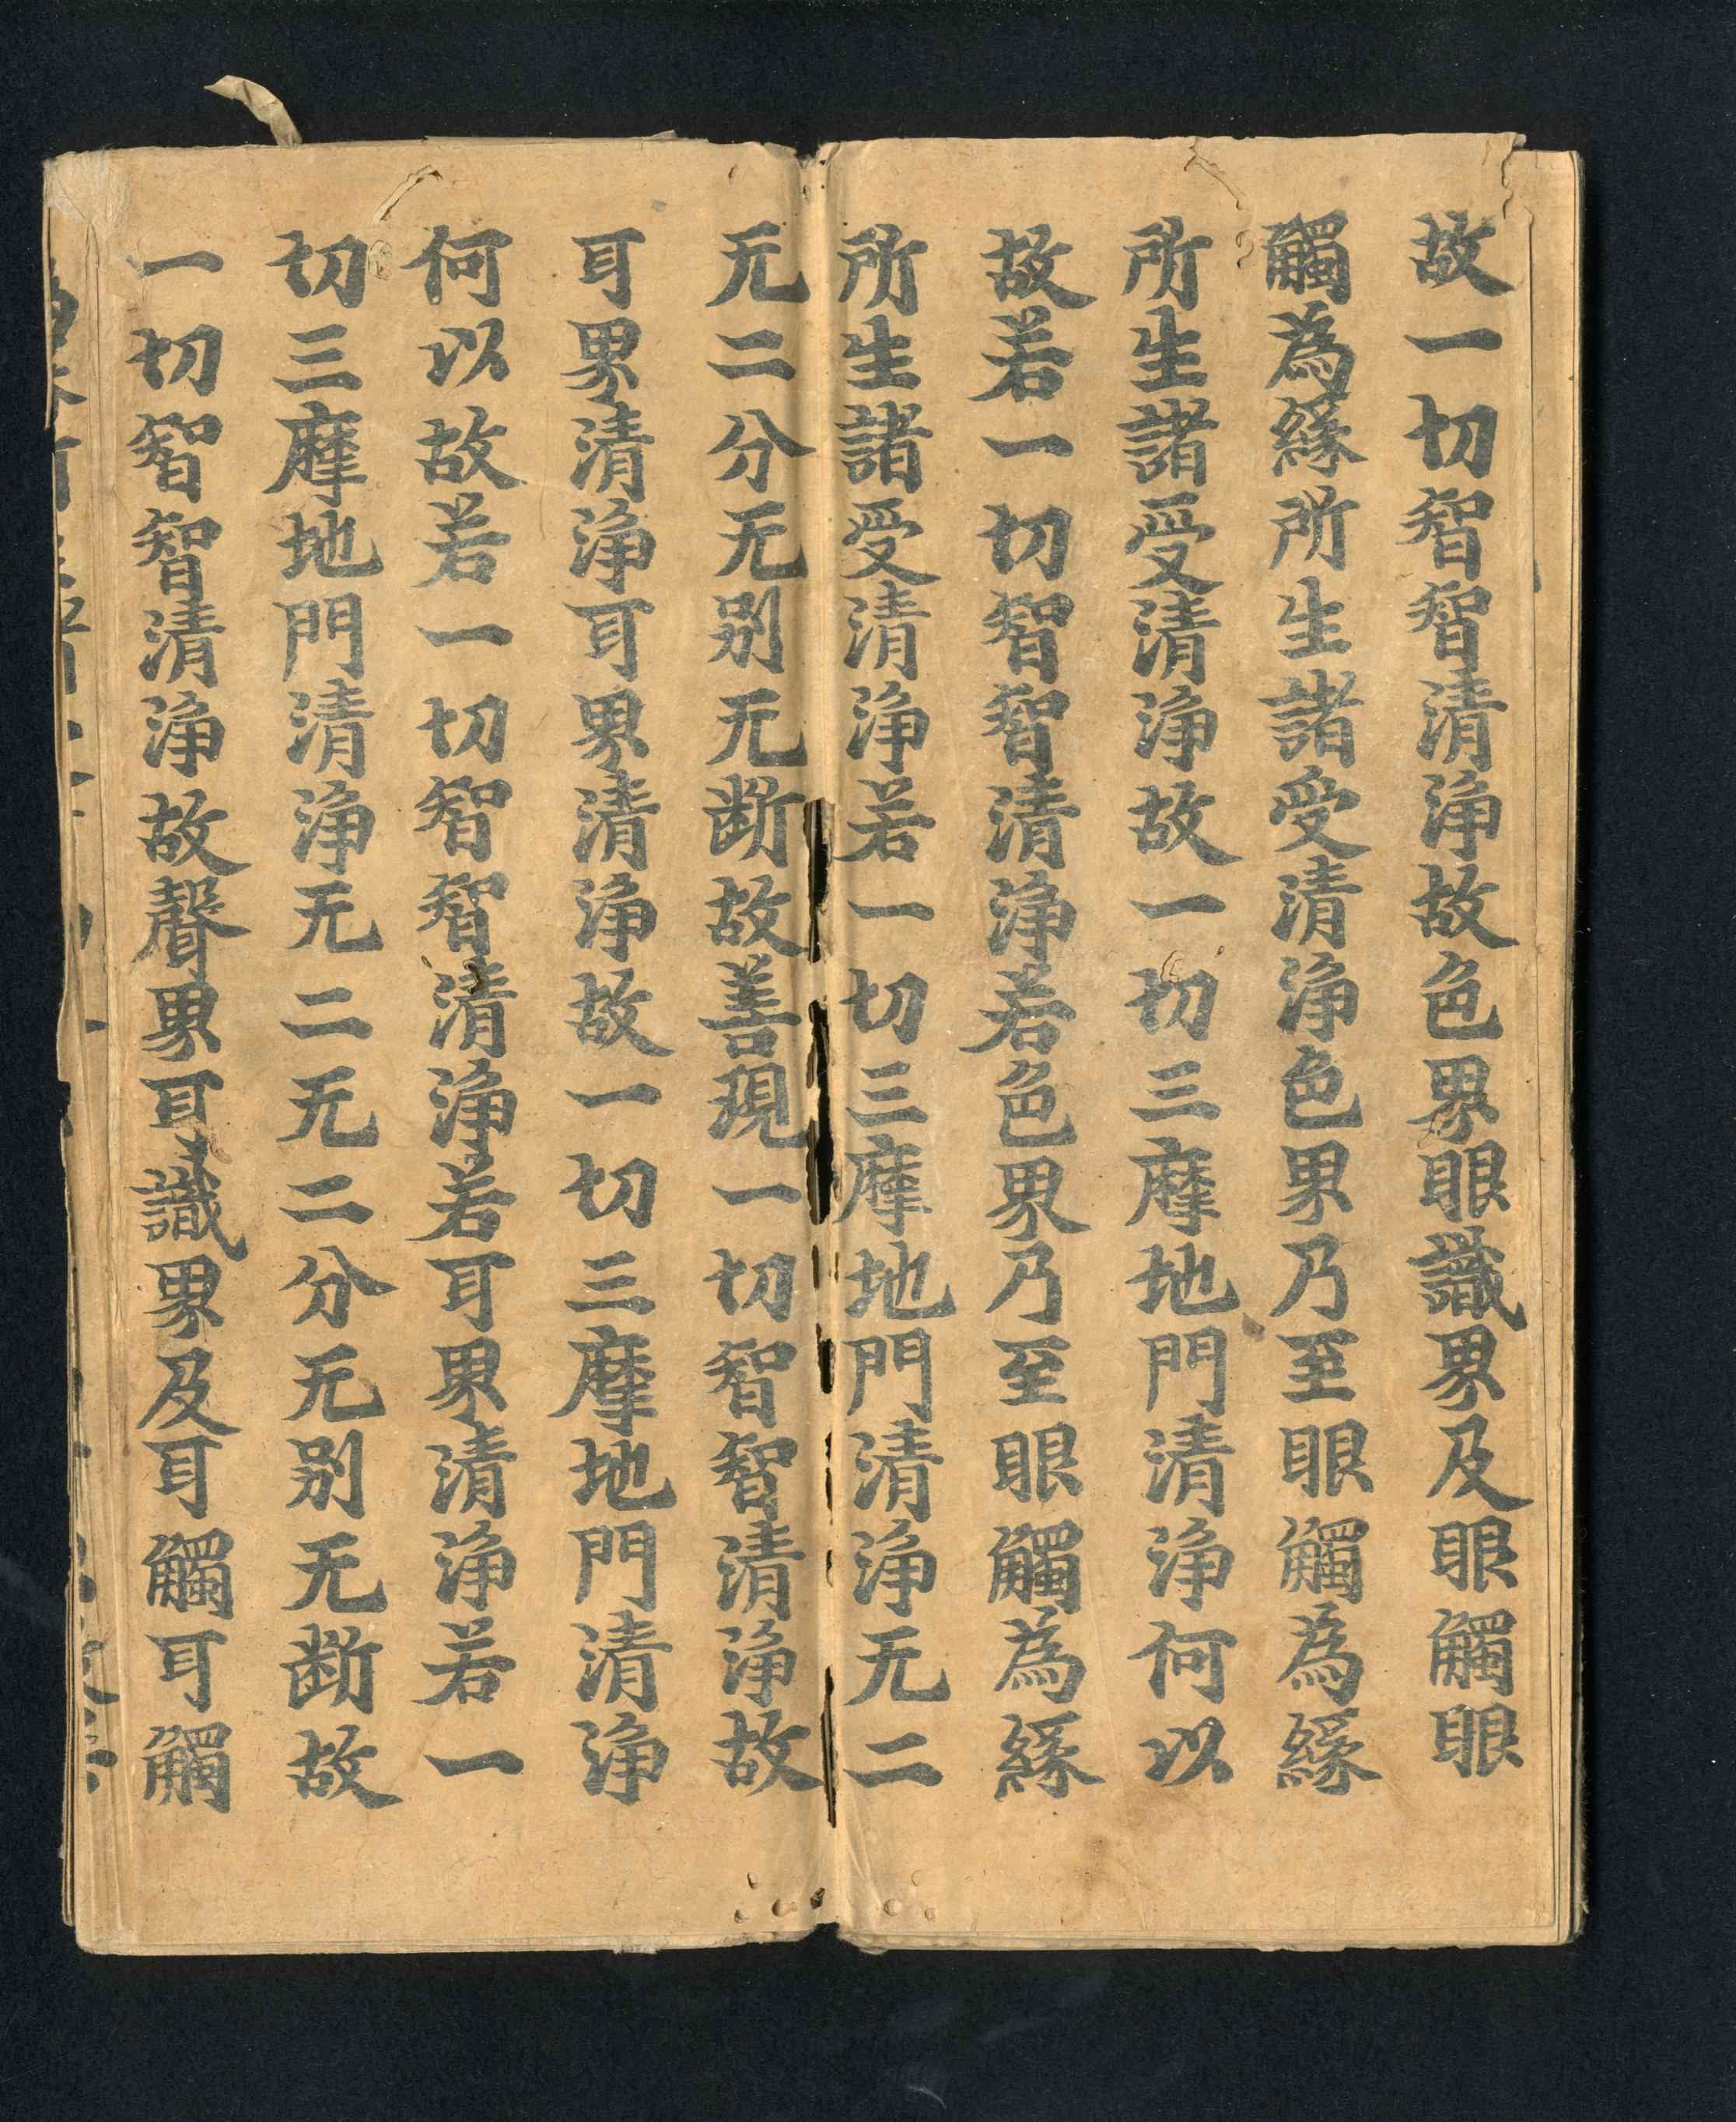 故一切智智清淨故色界眼識界及眼觸眼
觸為緣所生諸受清淨色界乃至眼觸為緣
所生諸受清淨故一切三摩地門清淨何以
故若一切智智清淨若色界乃至眼觸為緣
所生諸受清淨若一切三摩地門清淨无二
无二分无别无断故善現一切智智清淨故
耳界清淨耳界清淨故一切三摩地門清淨
何以故若一切智智清淨若耳界清淨若一
切三摩地門清淨无二无二分无别无断故
一切智智清淨故聲界耳識界及耳觸耳觸